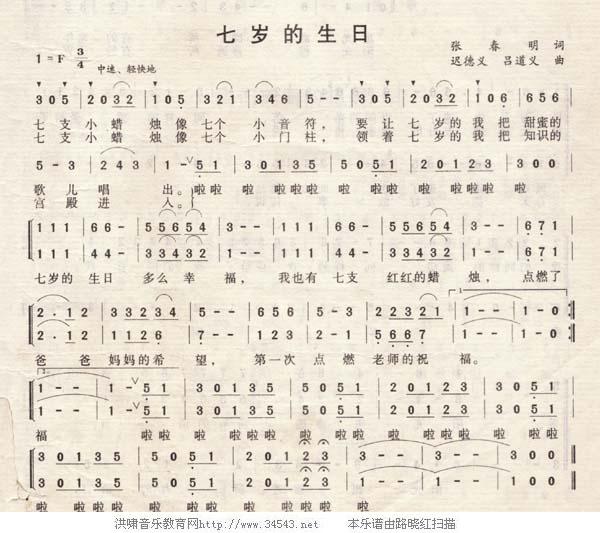 七岁的生日
1=F 3/4
中速、轻快地
张春明 词
迟德义 吕道义 曲
3 0 5 | 2 0 3 2 | 1 0 5 | 3 2 1 | 3 4 6 | 5 - - | 3 0 5 | 2 0 3 2 | 1 0 6 | 6 5 6
七支小蜡烛像七个小音符，要让七岁的我把甜蜜的
七支小蜡烛像七个小门柱，领着七岁的我把知识的
5 - 3 | 2 4 3 | 1 - 5 1 | 3 0 1 3 5 | 5 0 5 1 | 3 0 1 3 5 | 5 0 5 1 | 3 0 5 1 | 3 0 5 1 | 3 0 0
歌儿唱出。啦啦 啦 啦啦啦 啦 啦啦 啦 啦啦啦 啦 啦啦 啦 啦啦 啦
宫殿进人。
1 1 1 | 6 6 - | 5 5 6 5 4 | 3 - - | 1 1 1 | 6 6 - | 5 5 6 5 4 | 3 - - | 6 7 1
1 1 1 | 6 6 - | 3 3 4 3 2 | 1 - - | 1 1 1 | 6 6 - | 3 3 4 3 2 | 1 - - | 6 7 1
七岁的生日多么幸福，我也有七支红红的蜡烛，点燃了
2 · 1 2 | 3 3 2 3 4 | 5 - - | 1 2 3 | 5 - 3 | 2 2 3 2 1 | 1 - - | 1 - -
2 · 1 2 | 1 1 2 6 | 7 - - | 1 2 3 | 2 - 1 | 5 6 6 7 | 1 - - | 1 - -
爸爸妈妈的希望，第一次点燃老师的祝福。
1 - - | 1 - 5 1 | 3 0 1 3 5 | 5 0 5 1 | 3 0 1 3 5 | 5 0 5 1 | 3 0 5 1 | 3 0 5 1
1 - - | 1 - 5 1 | 3 0 1 3 5 | 5 0 5 1 | 3 0 1 3 5 | 5 0 5 1 | 3 0 5 1 | 3 0 5 1
福 啦啦 啦 啦啦啦 啦 啦啦 啦 啦啦啦 啦 啦啦 啦 啦啦 啦 啦啦
3 0 1 3 5 | 5 0 5 1 | 3 0 1 3 5 | 5 0 5 1 | 2 0 1 2 3 | 1 - - | 1 - - | 1 0 0
3 0 1 3 5 | 5 0 5 1 | 3 0 1 3 5 | 5 0 5 1 | 2 0 1 2 3 | 1 - - | 1 - - | 1 0 0
啦 啦啦啦 啦 啦啦 啦 啦啦啦 啦
洪啸音乐教育网http://www.34543.net 本乐谱由路晓红扫描